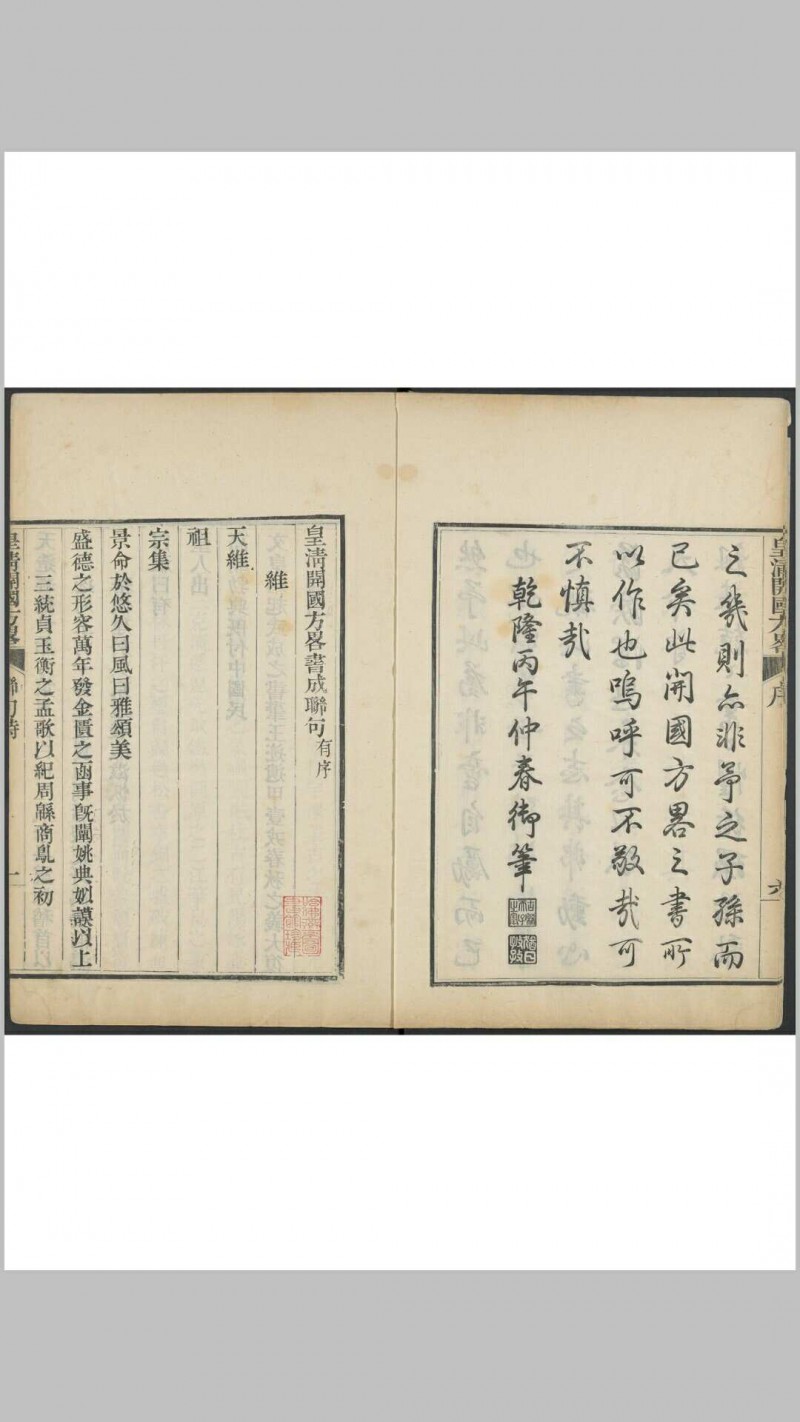 皇清開國方畧
序
之幾則亦非予之子孫而
已矣此開國方畧之書所
以作也嗚呼可不敬哉可
不慎哉
乾隆丙午仲春御筆
皇清開國方畧書成聯句有序
維
天維
祖
宗集
景命於悠久曰風曰雅頌美
盛德之形容萬年發金匱之函事旣闡姚典姒謨以上
三統貞玉衡之孟歌以紀周緜商亂之初
皇清開國方畧
聯句詩
一